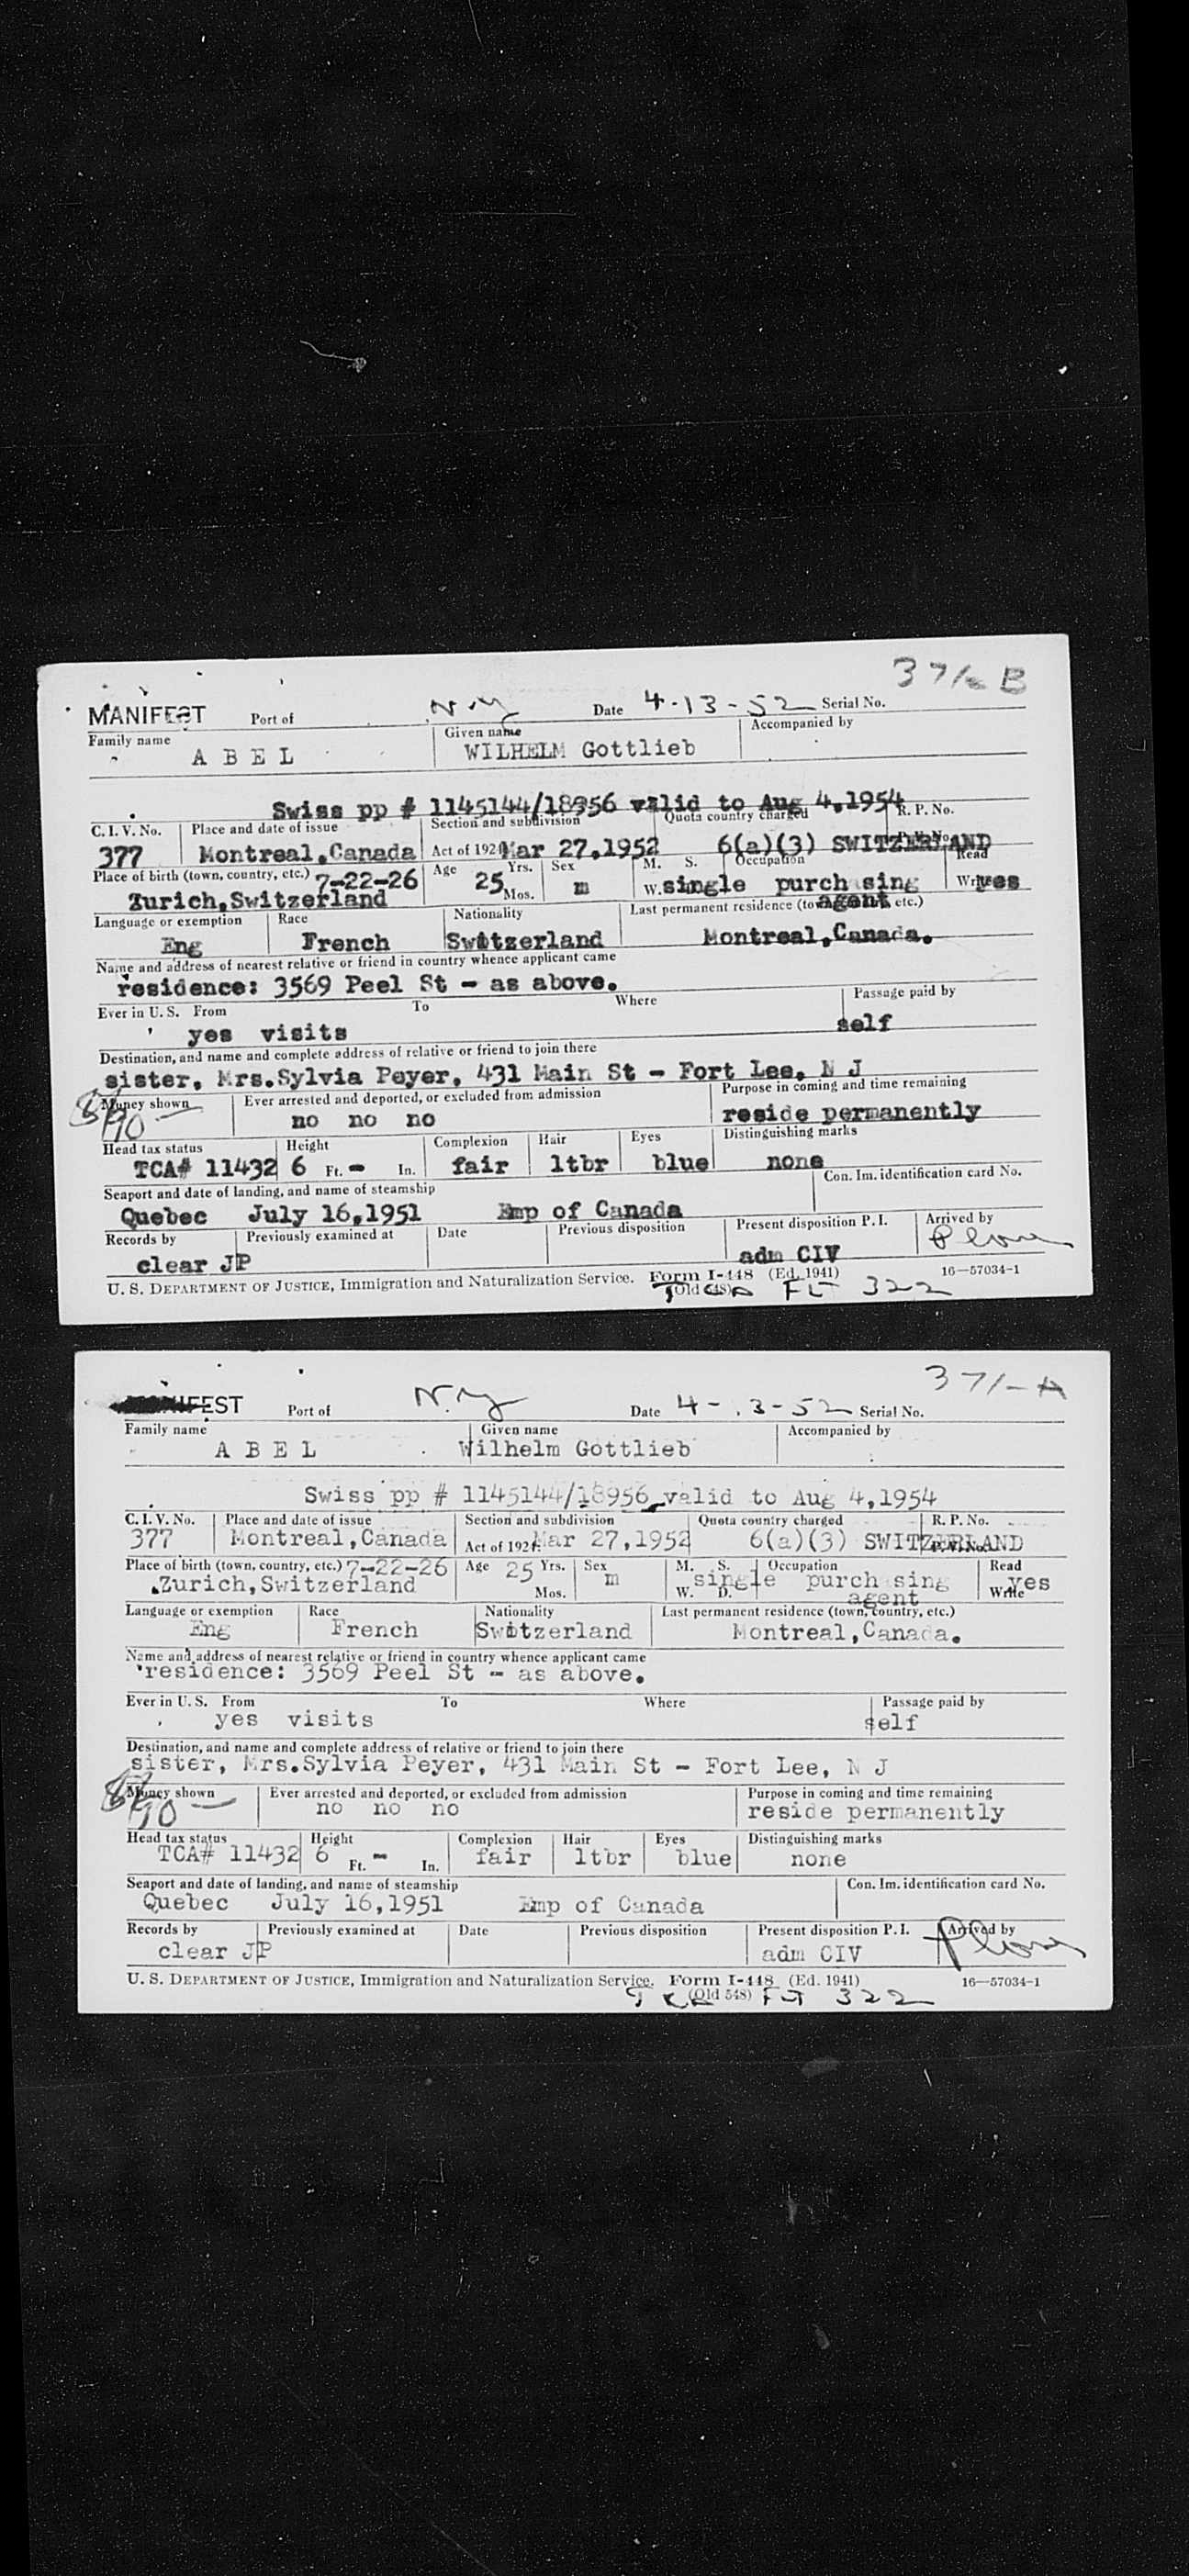 371-B
MANIFEST Port of N.Y Date 4-13-52 Serial No.
Family name Given name Accompanied by
A B E L WILHELM Gottlieb
Swiss pp # 1145144/18956 valid to Aug 4,1954
C. I. V. No. Place and date of issue Section and subdivision Quota country charged R. P. No.
377 Montreal,Canada Act of 1924 Mar 27,1952 6(a)(3) SWITZERLAND P. V. No.
Place of birth (town, country, etc.) 7-22-26 Age Yrs. Sex M. S. Occupation Read
Zurich,Switzerland 25 Mos. m W. single purch sing agent Write yes
Language or exemption Race Nationality Last permanent residence (town, country, etc.)
Eng French Switzerland Montreal,Canada.
Name and address of nearest relative or friend in country whence applicant came
residence: 3569 Peel St - as above.
Ever in U. S. From To Where Passage paid by
yes visits self
Destination, and name and complete address of relative or friend to join there
sister, Mrs.Sylvia Peyer, 431 Main St - Fort Lee, N J
Money shown Ever arrested and deported, or excluded from admission Purpose in coming and time remaining
no no no reside permanently
Head tax status Height Complexion Hair Eyes Distinguishing marks
TCA# 11432 6 Ft. - In. fair ltbr blue none
Seaport and date of landing, and name of steamship Con. Im. identification card No.
Quebec July 16,1951 Emp of Canada
Records by Previously examined at Date Previous disposition Present disposition P. I. Arrived by
clear JP adm CIV
U. S. DEPARTMENT OF JUSTICE, Immigration and Naturalization Service. Form I-448 (Ed. 1941) 16—57034-1
(Old 548) FL 322
371-A
MANIFEST Port of N.Y Date 4-13-52 Serial No.
Family name Given name Accompanied by
A B E L Wilhelm Gottlieb
Swiss pp # 1145144/18956 valid to Aug 4,1954
C. I. V. No. Place and date of issue Section and subdivision Quota country charged R. P. No.
377 Montreal,Canada Act of 1924 Mar 27,1952 6(a)(3) SWITZERLAND P. V. No.
Place of birth (town, country, etc.) 7-22-26 Age 25 Yrs. Sex M. S. Occupation Read
Zurich,Switzerland Mos. m W. D. single purch sing agent Write yes
Language or exemption Race Nationality Last permanent residence (town, country, etc.)
Eng French Switzerland Montreal,Canada.
Name and address of nearest relative or friend in country whence applicant came
residence: 3569 Peel St - as above.
Ever in U. S. From To Where Passage paid by
yes visits self
Destination, and name and complete address of relative or friend to join there
sister, Mrs.Sylvia Peyer, 431 Main St - Fort Lee, N J
Money shown Ever arrested and deported, or excluded from admission Purpose in coming and time remaining
no no no reside permanently
Head tax status Height Complexion Hair Eyes Distinguishing marks
TCA# 11432 6 Ft. - In. fair ltbr blue none
Seaport and date of landing, and name of steamship Con. Im. identification card No.
Quebec July 16,1951 Emp of Canada
Records by Previously examined at Date Previous disposition Present disposition P. I. Arrived by
clear JP adm CIV
U. S. DEPARTMENT OF JUSTICE, Immigration and Naturalization Service. Form I-448 (Ed. 1941) 16—57034-1
(Old 548) 322